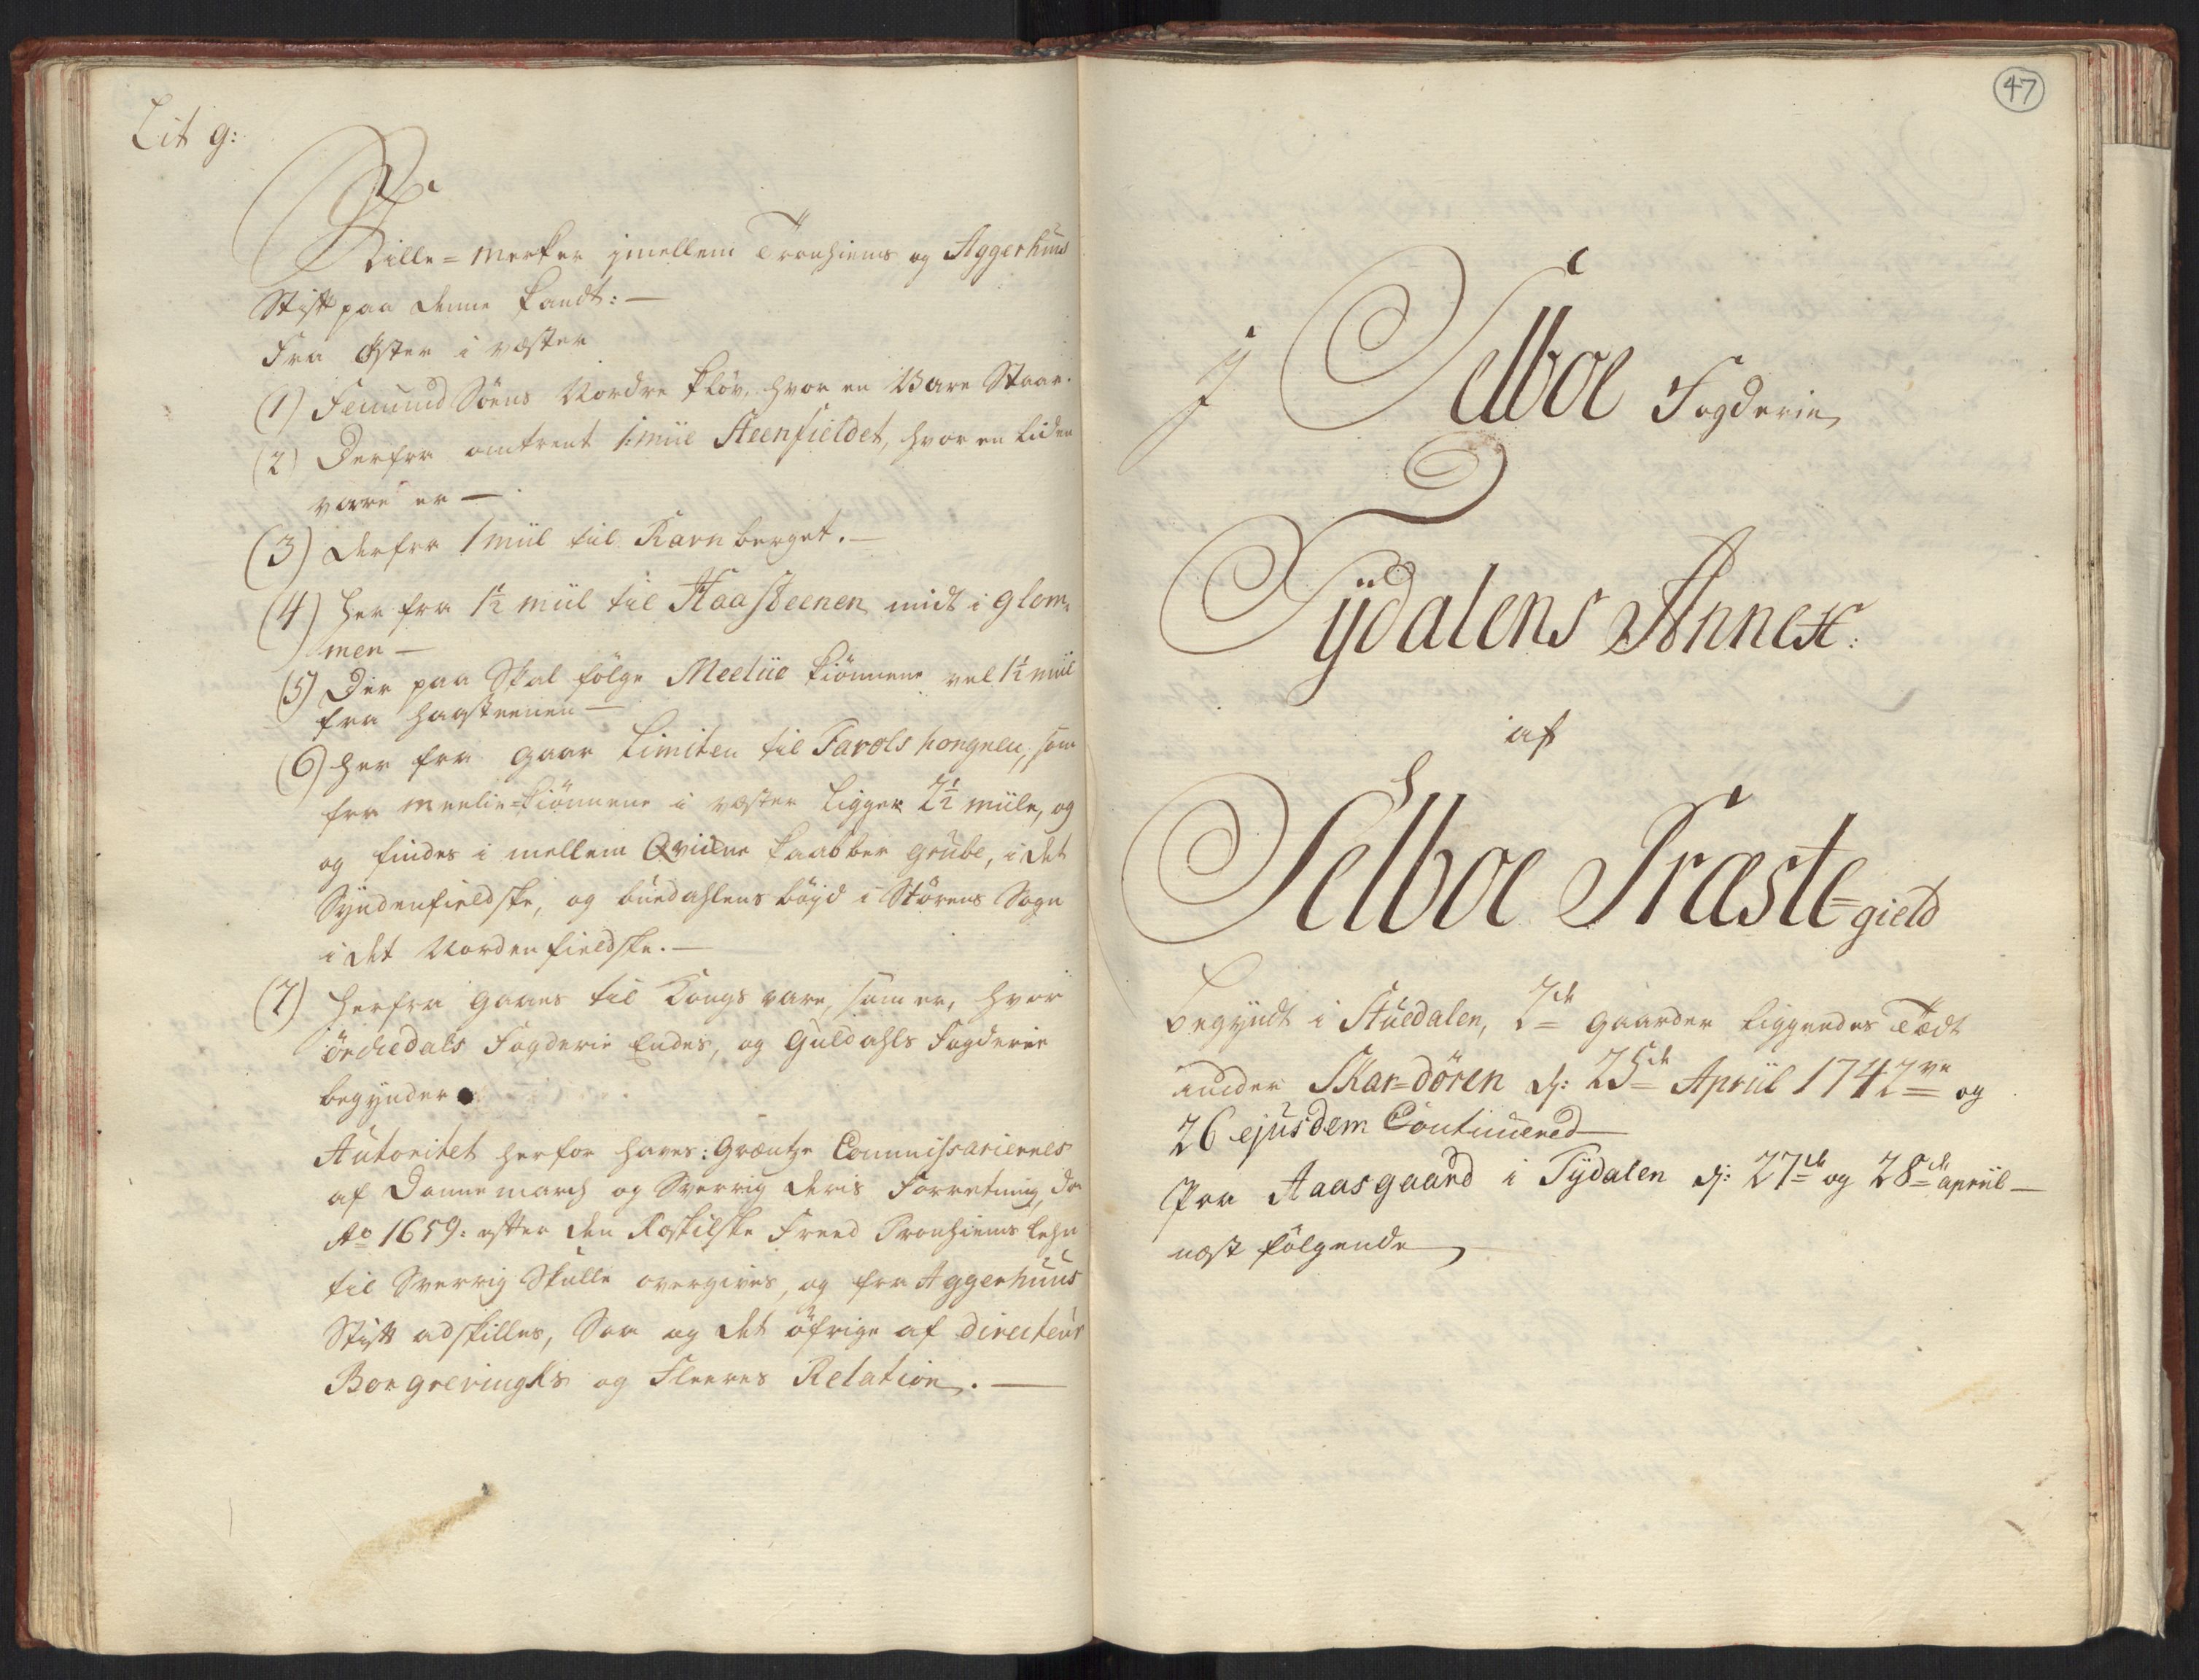 Lit g:
Skille=Merker jmellem Tronhiems og Aggerhuus
Stift paa denne kandt: —
Fra Øster i væster
(1) Femund Söens Nordre kløv, hvor en Vare Staar.
(2) Derfra omtrent 1: miil Steenfieldet, hvor en liden
vare er —
(3) derfra 1 miil til Ravnberget. —
(4) her fra 1½ miil til Haasteenen midt i glom-
men —
(5) Der paa Skal fölge Meeliie kiönnene vel 1½ miil
fra haasteenen —
(6) her fra gaar Limiten til Farols hongnen, som
fra Meelie=kiönnene i væster ligger 2½ miile, og
og findes i mellem Qvidne kaabber grube, i det
Syndenfieldske, og buedahlens böyd i Störens Sogn
i det Nordenfieldske. —
(7) herfra gaaes til Kongs vare, som er, hvor
örchedals Fogderie Endes, og Guldahls Fogderie
begynder
Autoritet herfor haves: Grentze Commissariernes
af Dannemarch og Sverrig deris Forretning, da
Ao 1659: efter den Roskilske Freed Tronhiems lehn
til Sverrig Skulle overgives, og fra Aggerhuus
Stift adskilles, Saa og det öfrige af Directeur
Borgrevingks og Fleeres Relation. —
47
J Selboe Fogderie
Tydalens Annex:
af
Selboe Præste=gield
begyndt i Stuedalen, 2de gaarder liggendes Tædt
under Skar=dören d: 25de Apriil 1742ve og
26 ejusdem Continuered —
Paa Aasgaard i Tydalen d: 27de og 28de apriil —
næst fölgende